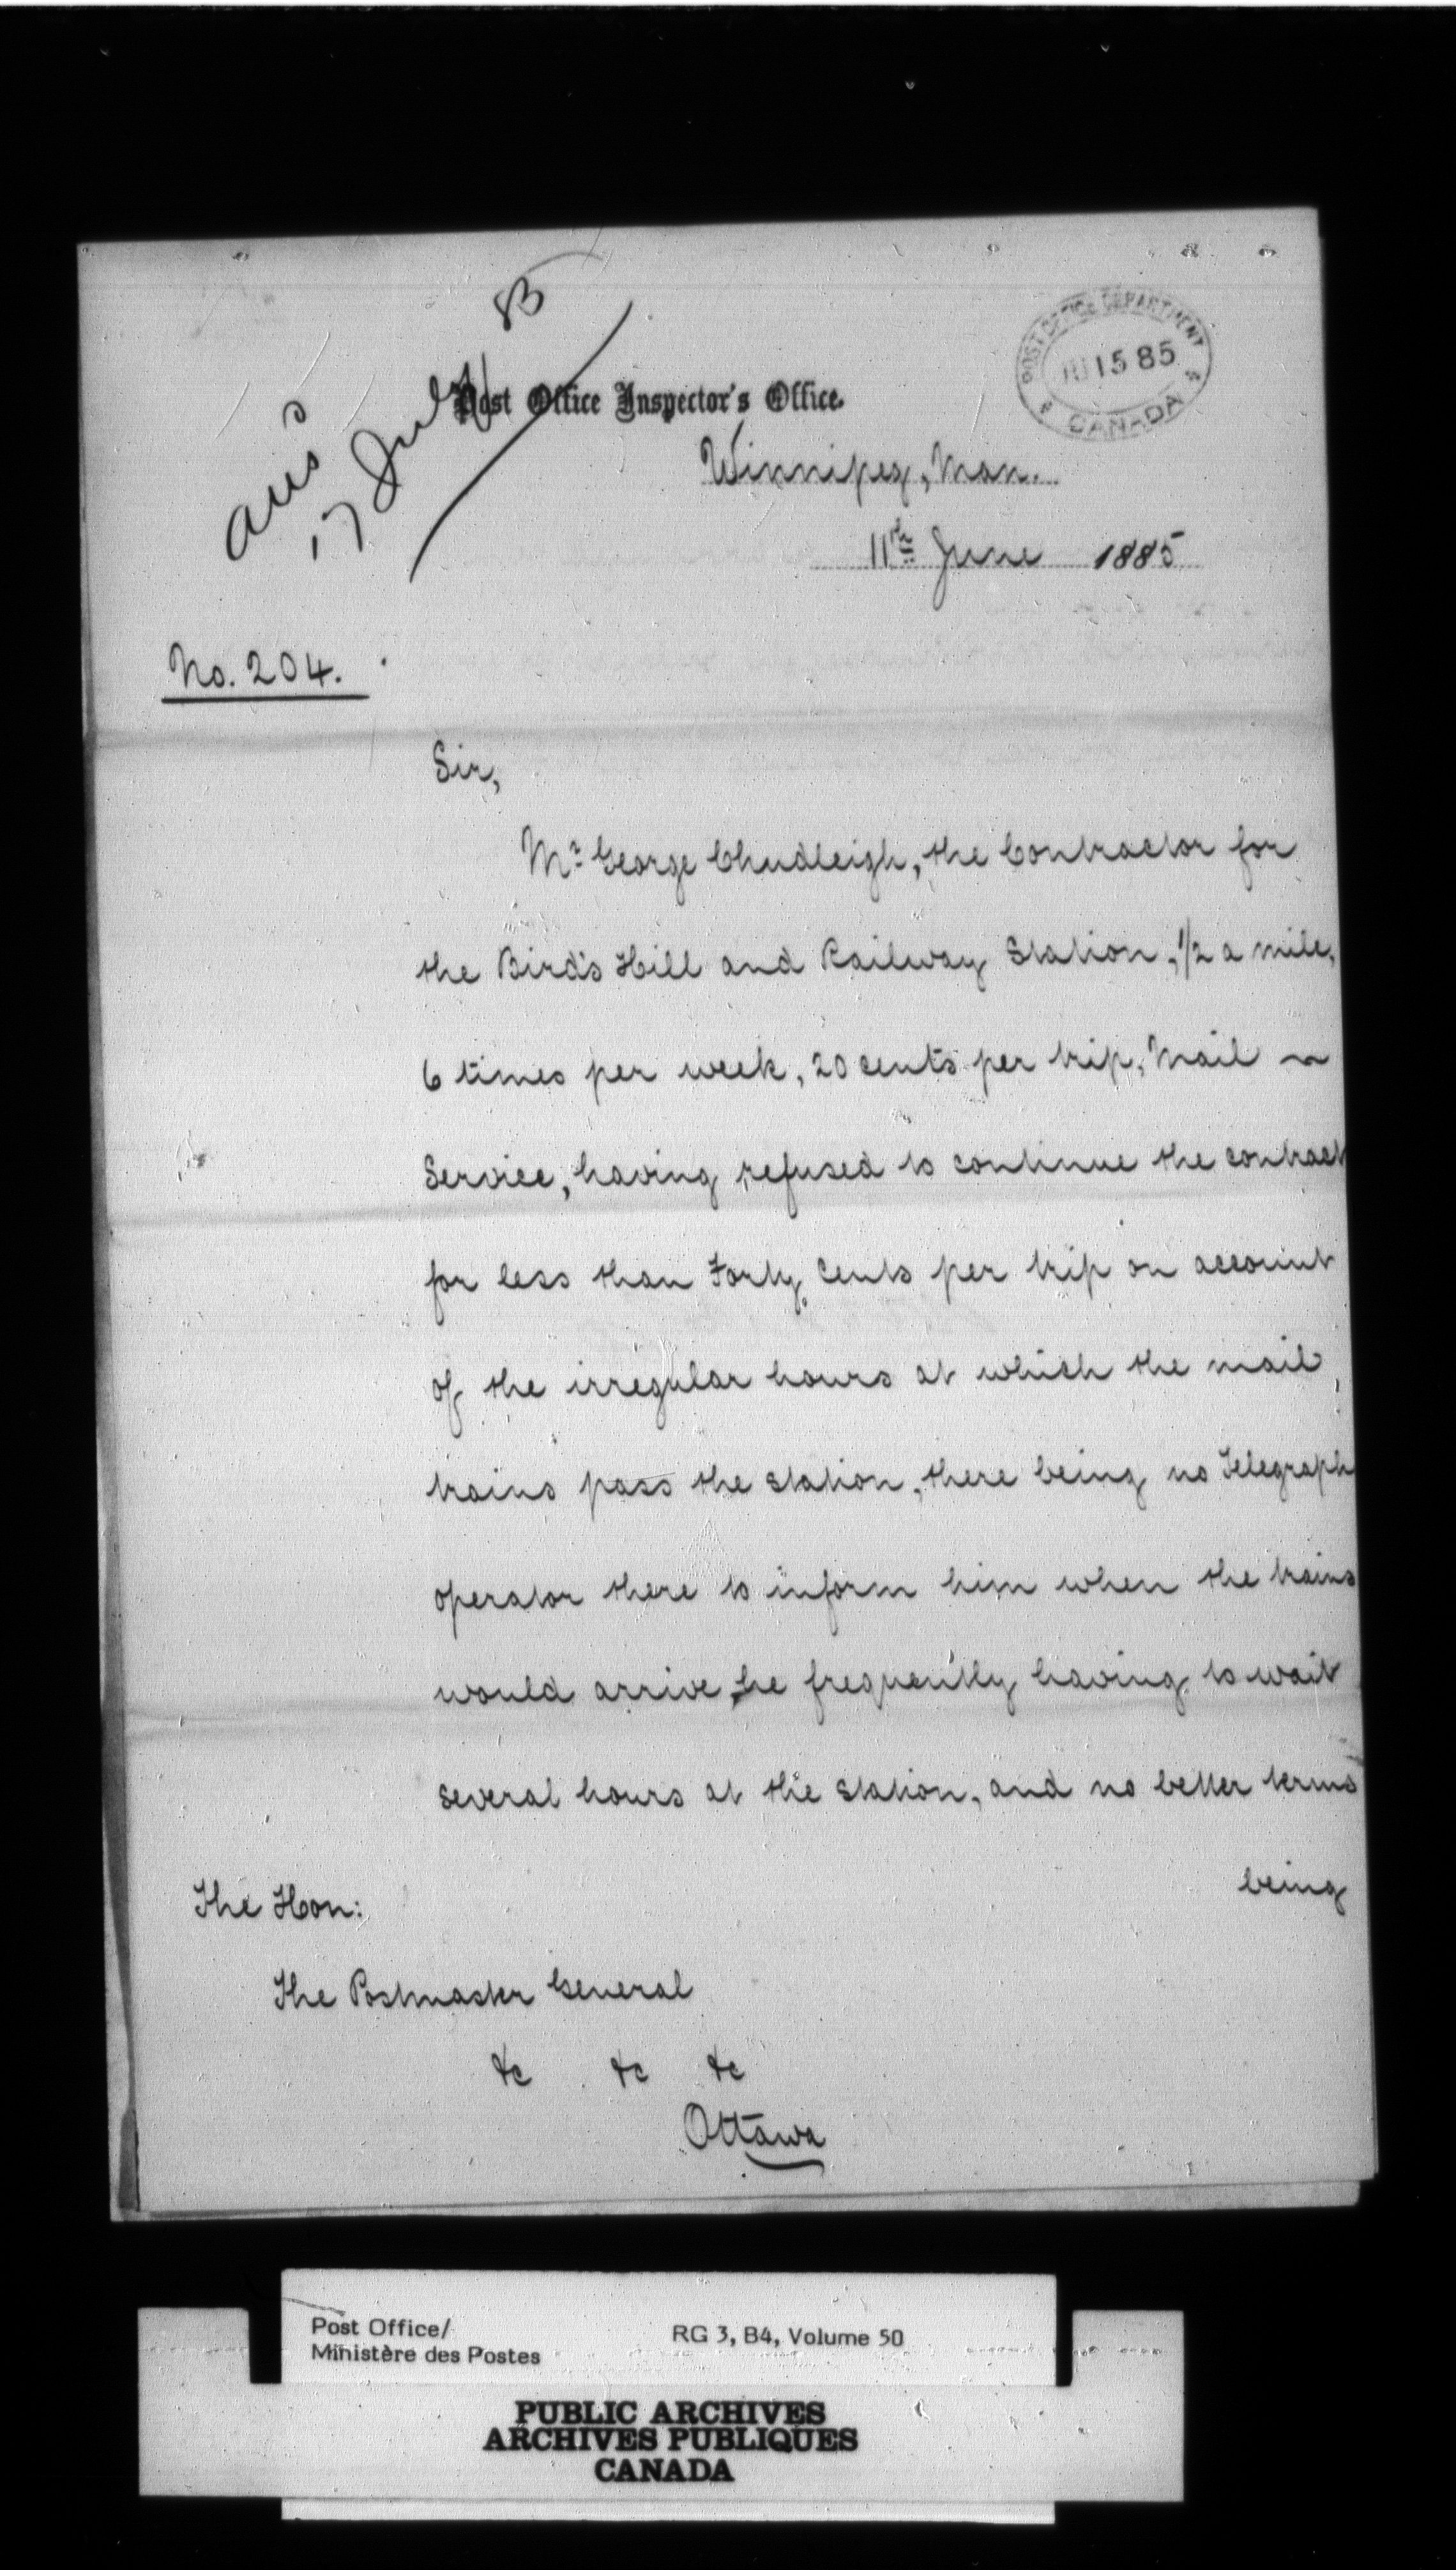 ans'd
17 July 85
Post Office Inspector's Office.
POST OFFICE DEPARTMENT
15 85
CANADA
Winnipeg, Man.
11th June 1885
No. 204.
Sir,
Mr. George Chudleigh, the Contractor for
the Bird's Hill and Railway Station, 1/2 a mile,
6 times per week, 20 cents per trip, Mail
Service, having refused to continue the contract
for less than Forty Cents per trip on account
of the irregular hours at which the mail
trains pass the station, there being no Telegraph
operator there to inform him when the trains
would arrive, he frequently having to wait
several hours at the station, and no better terms
being
The Hon:
The Postmaster General
&c &c &c
Ottawa
Post Office/
Ministère des Postes
RG 3, B4, Volume 50
PUBLIC ARCHIVES
ARCHIVES PUBLIQUES
CANADA